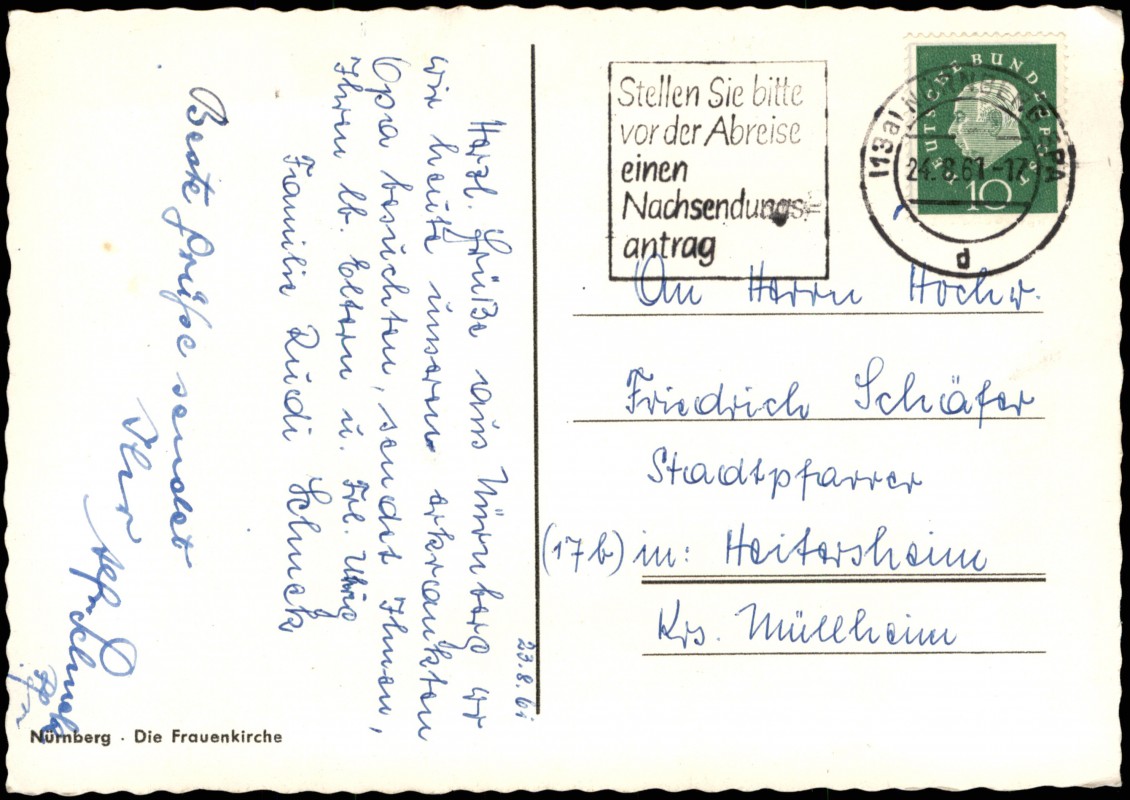 Stellen Sie bitte
vor der Abreise
einen
Nachsendungs-
antrag
DEUTSCHE BUNDESPOST
10
(13a) NÜRNBERG
24.8.61.-17
d
23.8.61
Herzl. Grüße aus Nürnberg wo
wir heute unseren erkrankten
Opa besuchten, sendet Ihnen,
Ihren lb. Eltern u. Frl.
Familie Ruedi Schmek
Beste Grüße sendet
Ihr
An Herrn Hochw.
Friedrich Schäfer
Stadtpfarrer
(17b) in: Heitersheim
Krs. Müllheim
Nürnberg · Die Frauenkirche